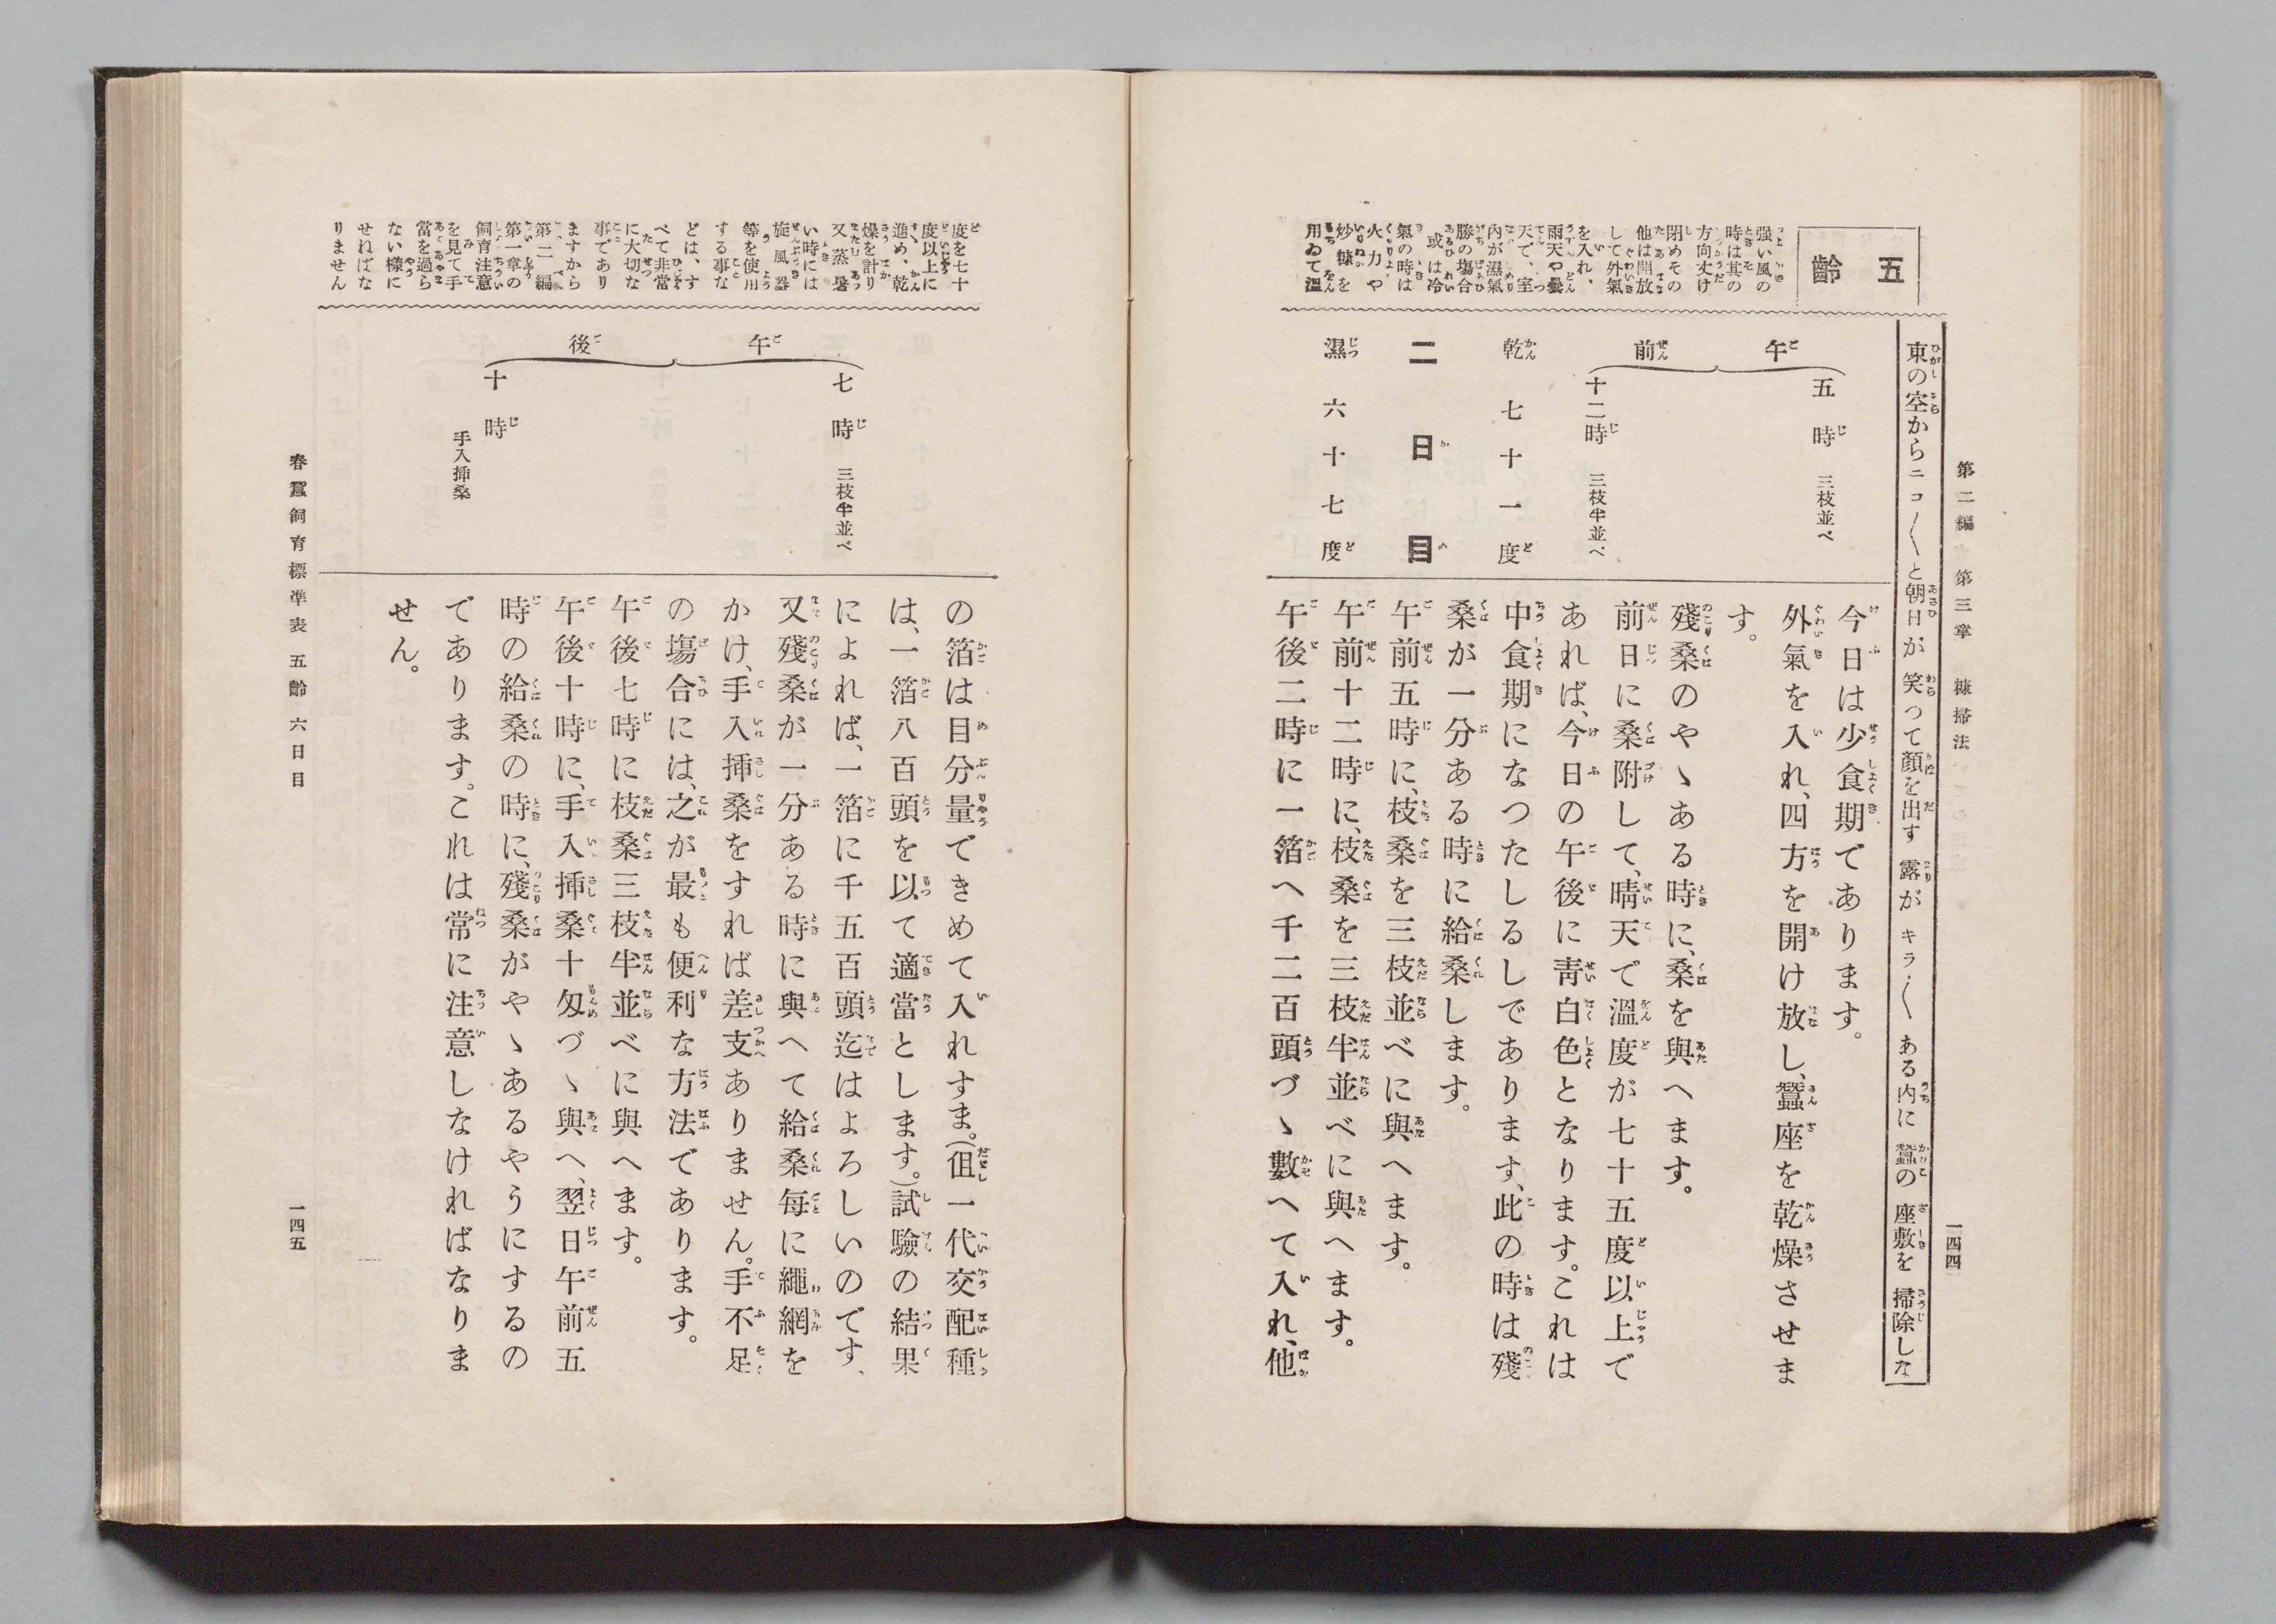 第二編　第三章　糠掃法
一四四
東の空からニコ〳〵と朝日が笑つて顔を出す　露がキラ〳〵ある内に　蠶の座敷を掃除しな
五齡
强い風の
時は其の
方向丈け
閉めその
他は開放
して外氣
を入れ、
雨天や曇
天で、室
内が濕氣
勝の場合
或は冷
氣の時は
火力や
炒糠を
用ゐて溫
午前
五時　三枝並べ
十二時　三枝半並べ
乾　七十一度
二日目
濕　六十七度
今日は少食期であります。
外氣を入れ、四方を開け放し、蠶座を乾燥させま
す。
殘桑のやゝある時に、桑を與へます。
前日に桑附して、晴天で溫度が七十五度以上で
あれば、今日の午後に靑白色となります。これは
中食期になつたしるしであります、此の時は殘
桑が一分ある時に給桑します。
午前五時に、枝桑を三枝並べに與へます。
午前十二時に、枝桑を三枝半並べに與へます。
午後二時に一箔へ千二百頭づゝ數へて入れ、他
度を七十
度以上に
進め、乾
燥を計り
又蒸暑
い時には
旋風器
等を使用
する事な
どは、す
べて非常
に大切な
事であり
ますから
第二編
第一章の
飼育注意
を見て手
當を過ら
ない樣に
せればな
りません
午後
七時　三枝半並べ
十時　手入揷桑
の箔は目分量できめて入れすま。(伹一代交配種
は、一箔八百頭を以て適當とします。)試驗の結果
によれば、一箔に千五百頭迄はよろしいのです、
又殘桑が一分ある時に與へて給桑每に繩網を
かけ、手入揷桑をすれば差支ありません。手不足
の場合には、之が最も便利な方法であります。
午後七時に枝桑三枝半並べに與へます。
午後十時に、手入揷桑十匁づゝ與へ、翌日午前五
時の給桑の時に、殘桑がやゝあるやうにするの
であります。これは常に注意しなければなりま
せん。
春蠶飼育標準表　五齡　六日目
一四五